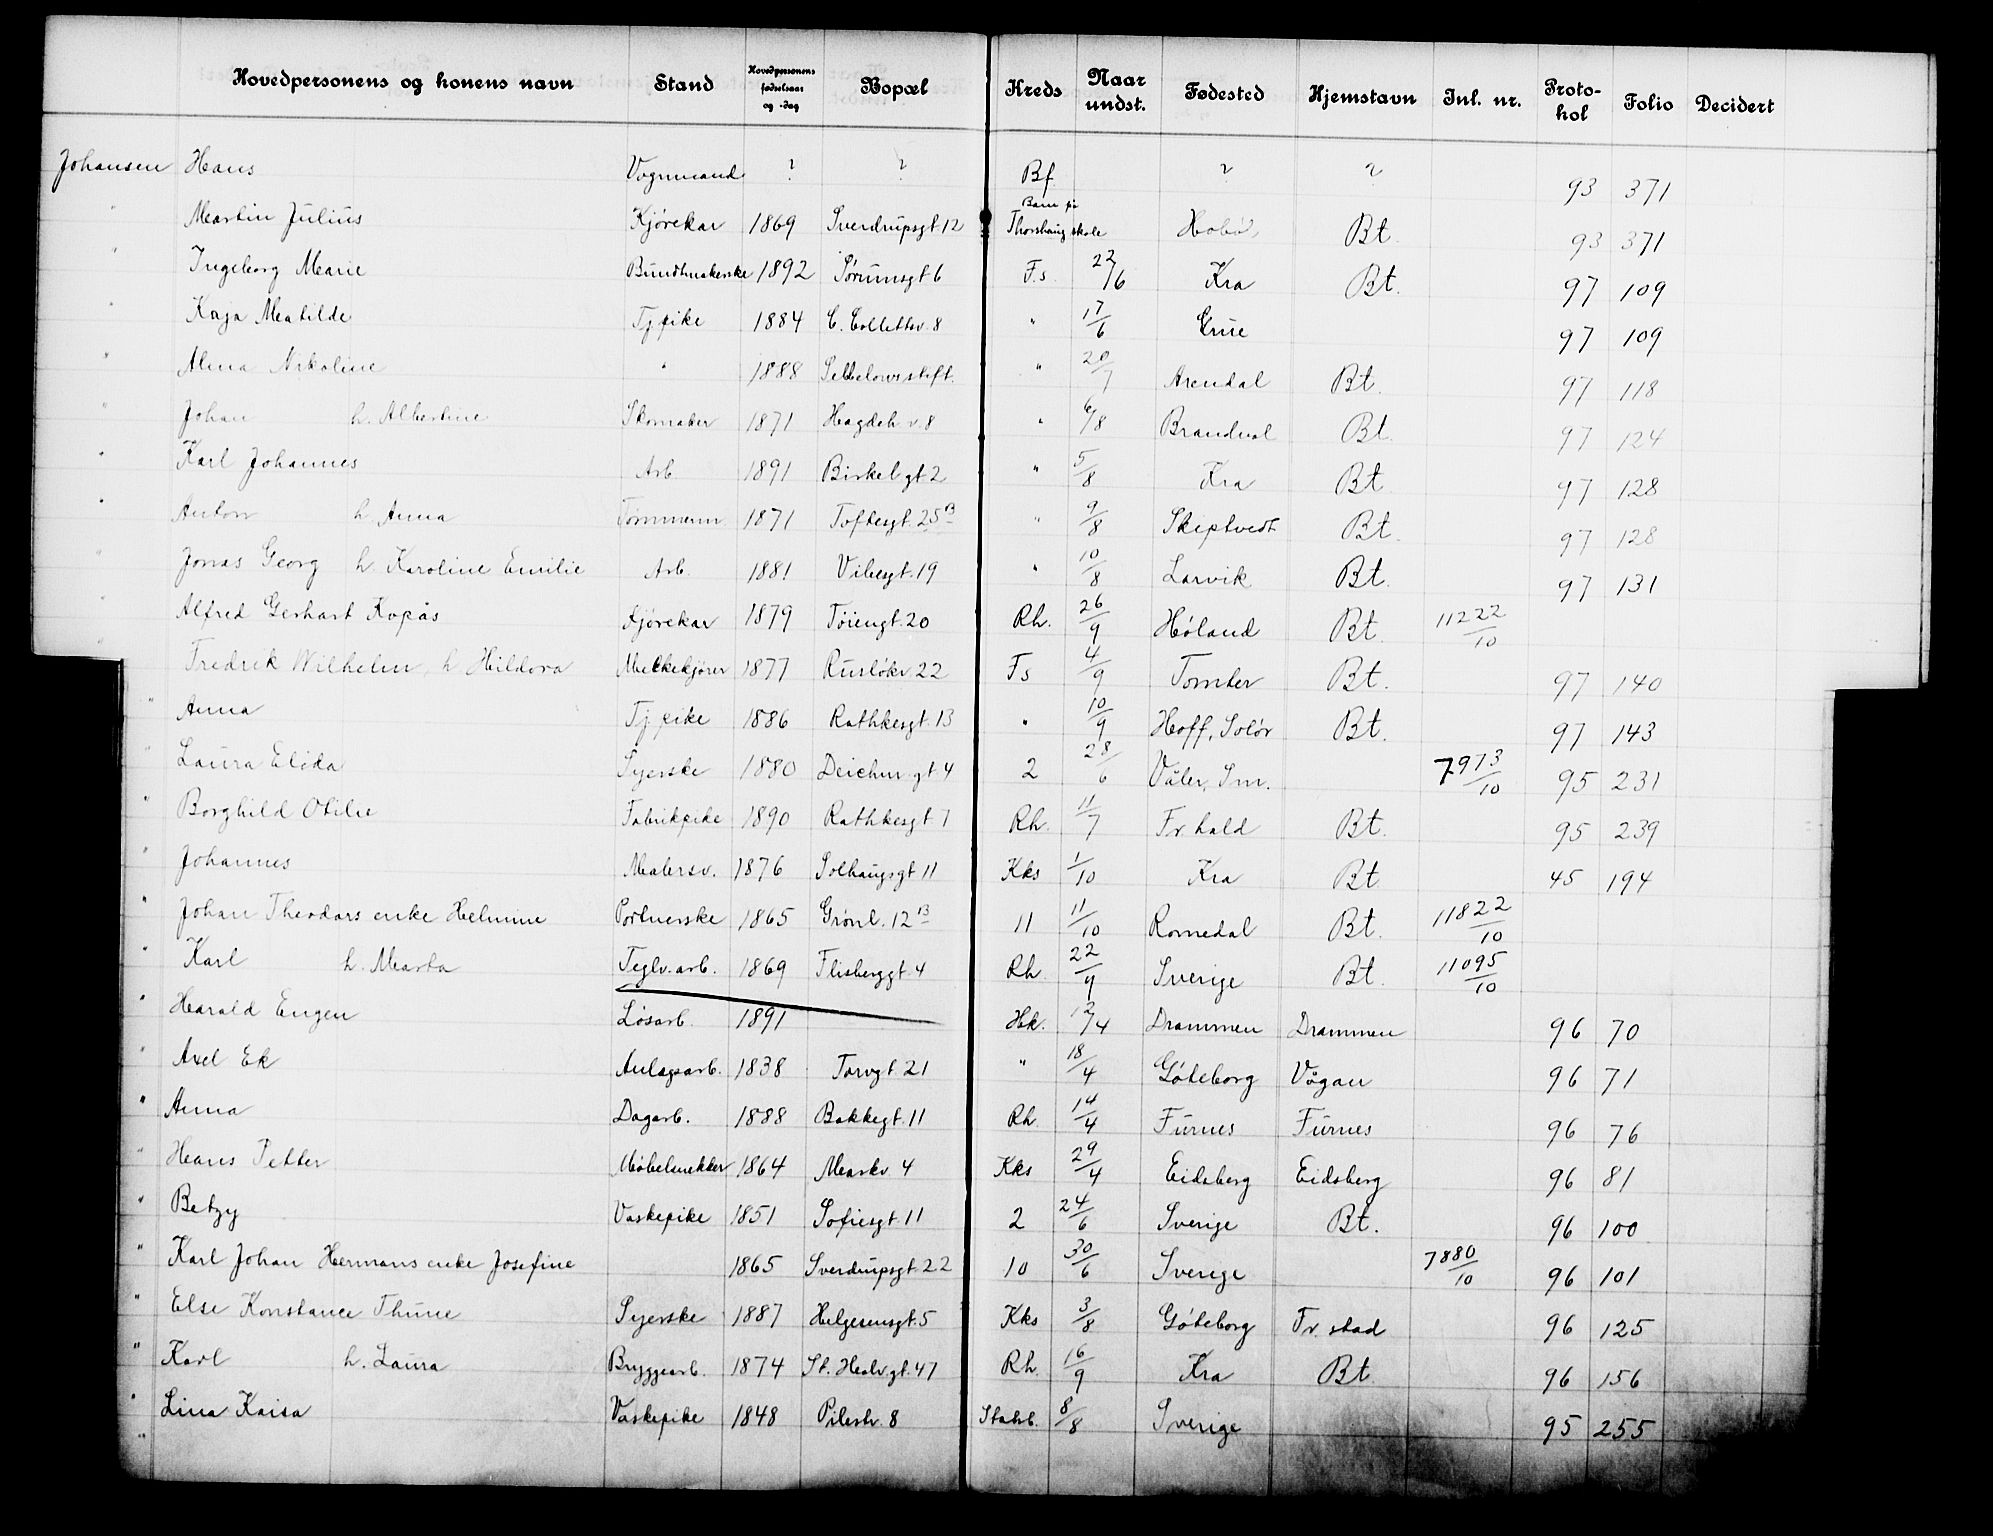 Hovedpersonens og konens navn Stand Hovedpersonens fødselsaar og -dag Bopæl Kreds Naar undst. Fødested Hjemstavn Inl. nr. Protokol Folio Decidert
Johansen Hans Vognmand ? ? Bf. ? ? 93 371
" Martin Julius Kjørekar 1869 Sverdrupsgt 12 Barn på Thorshaug skole Hobøl Bt. 93 371
" Ingeborg Marie Bundtmakerske 1892 Sørumsgt 6 Fs. 22/6 Kra Bt. 97 109
Kaja Matilde Tj.pike 1884 C. Collettsv. 8 " 17/6 Grue 97 109
" Alma Nikoline " 1888 " 20/7 Arendal Bt. 97 118
" Johan h. Albertine Skomaker 1871 Hagdeh v. 8 " 6/8 Brandval Bt. 97 124
" Karl Johannes Arb. 1891 Birkel gt 2 " 5/8 Kra Bt. 97 128
" Anton h. Anna Tømmerm 1871 Toftesgt. 25B " 9/8 Skiptvedt Bt. 97 128
" Jonas Georg h. Karoline Emilie Arb. 1881 Vibesgt. 19 " 10/8 Larvik Bt. 97 131
" Alfred Gerhart Kopås Kjørekar 1879 Tøiengt. 20 Rh. 26/9 Høland Bt. 11222/10
" Fredrik Wilhelm, h Hildora Melkekjører 1877 Rusløkv. 22 Fs 4/9 Tomter Bt. 97 140
" Anna Tj.pike 1886 Rathkesgt. 13 " 10/9 Hoff, Solør Bt. 97 143
" Laura Elida Syerske 1880 Deichm. gt 4 2 28/6 Våler, Sm. 7973/10 95 231
" Borghild Otilie Fabrikpike 1890 Rathkesgt 7 Rh. 11/7 Fr.hald Bt. 95 239
" Johannes Malersv. 1876 Solhaugsgt 11 Kks 1/10 Kra Bt 45 194
" Johan Theodors enke Helmine Portnerske 1865 Grønl. 12B 11 11/10 Romedal Bt. 11822/10
" Karl h. Marta Teglv.arb. 1869 Flisberggt. 4 Rh. 22/9 Sverige Bt. 11095/10
" Harald Eugen Løsarb. 1891 Hk. 12/4 Drammen Drammen 96 70
" Axel Ek Anlægsarb. 1838 Torvgt 21 " 18/4 Göteborg Vågan 96 71
" Anna Dagarb. 1888 Bakkegt. 11 Rh. 14/4 Furnes Furnes 96 76
" Hans Petter Møbelsnekker 1864 Markv. 4 Kks 29/4 Eidsberg Eidsberg 96 81
" Betzy Vaskepike 1851 Sofiesgt. 11 2 24/6 Sverige Bt. 96 100
" Karl Johan Hermans enke Josefine 1865 Sverdrupsgt. 22 10 30/6 Sverige 7880/10 96 101
" Else Konstance Thune Syerske 1887 Helgesensgt. 5 Kks 3/8 Göteborg Fr.stad 96 125
" Karl h. Laura Bryggearb. 1874 St. Halv. gt. 47 Rh. 16/9 Kra Bt. 96 156
" Lina Kaisa Vaskepike 1848 Pilestr. 8 8/8 Sverige 95 255
"